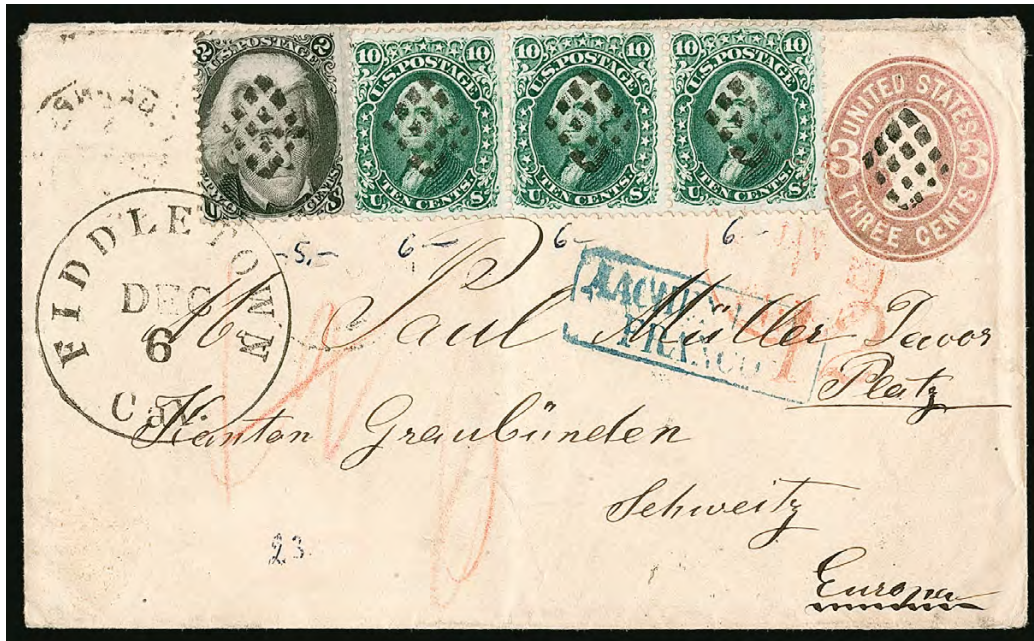 2 U.S. POSTAGE 2
TWO CENTS
10 U.S. POSTAGE 10
TEN CENTS.
U S
10 U.S. POSTAGE 10
TEN CENTS.
U S
10 U.S. POSTAGE 10
TEN CENTS.
U S
UNITED STATES
3 3
THREE CENTS
-5,- 6- 6- 6-
FIDDLETOWN
DEC
6
Cal.
AACHEN
FRANCO
12
Paul Müller Davos
Platz
Kanton Graubünden
Schweitz
Europa
23.